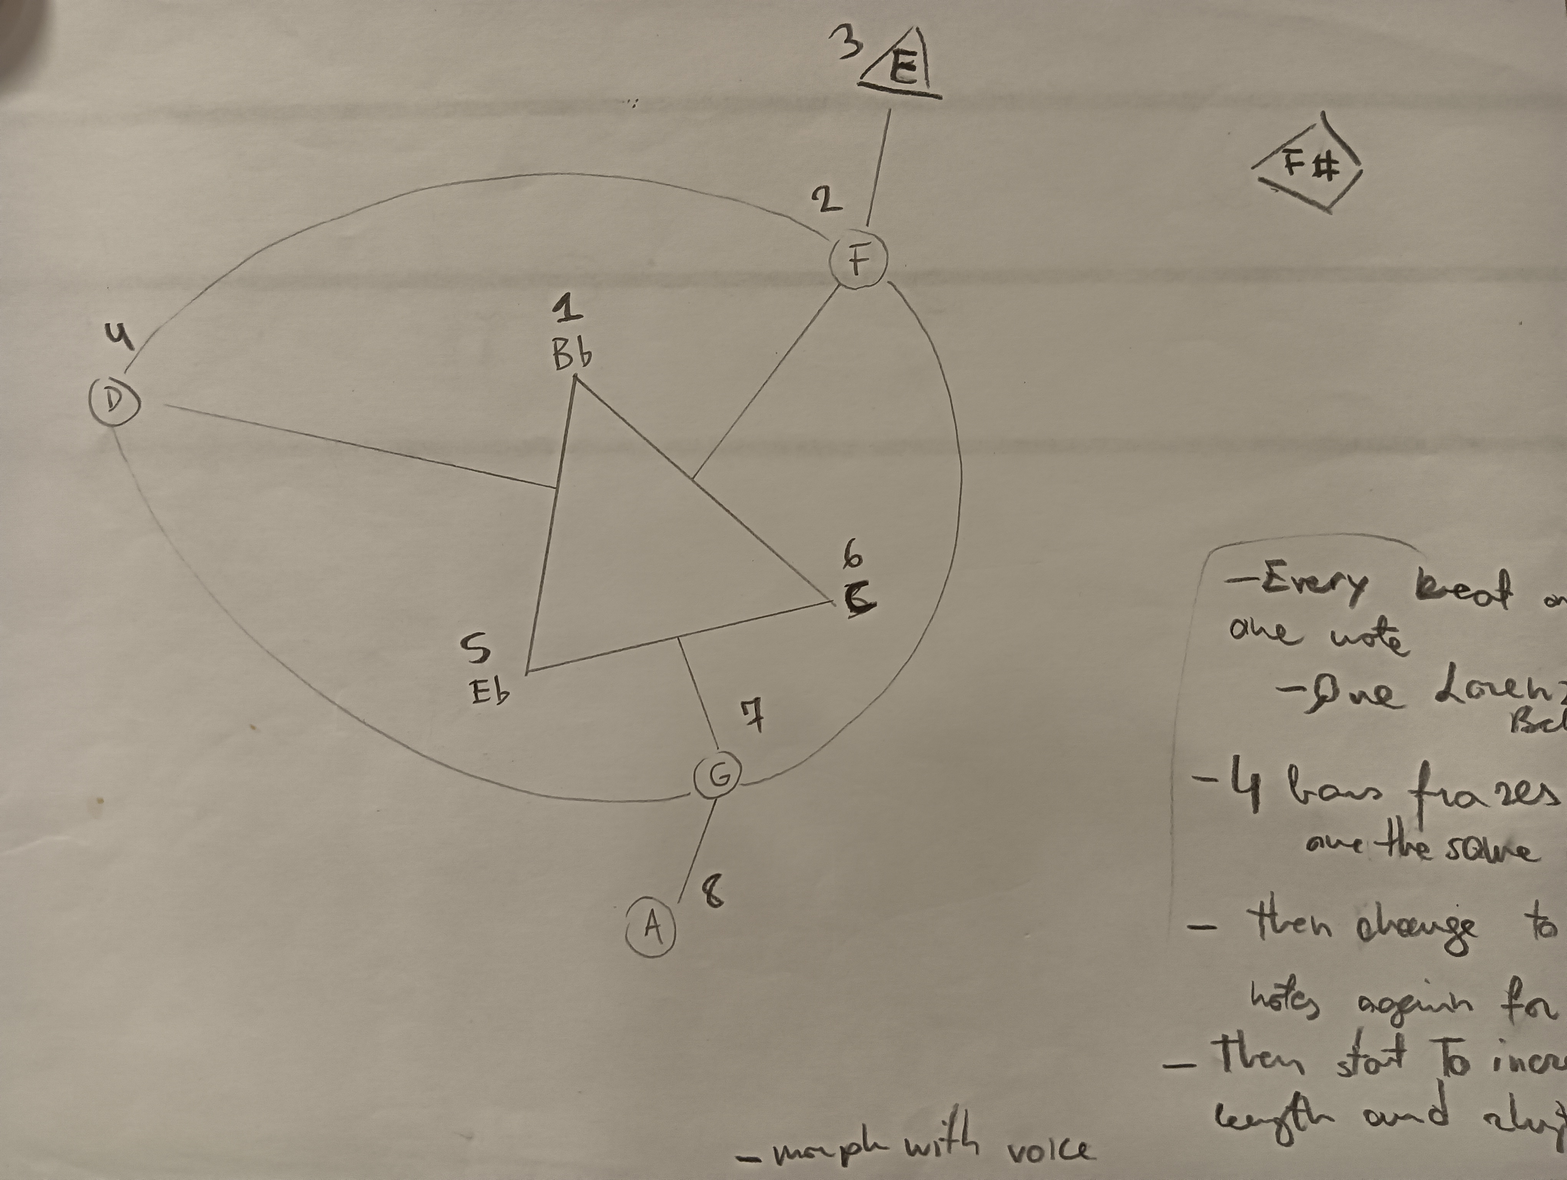 3 E
F#
2
F
4
D
1
Bb
6
C
5
Eb
7
G
8
A
- Every beat
one note
- One Loren
- 4 bars frazes
are the same
- then change to
notes again for
- Then start To incr
length and
- morph with voice